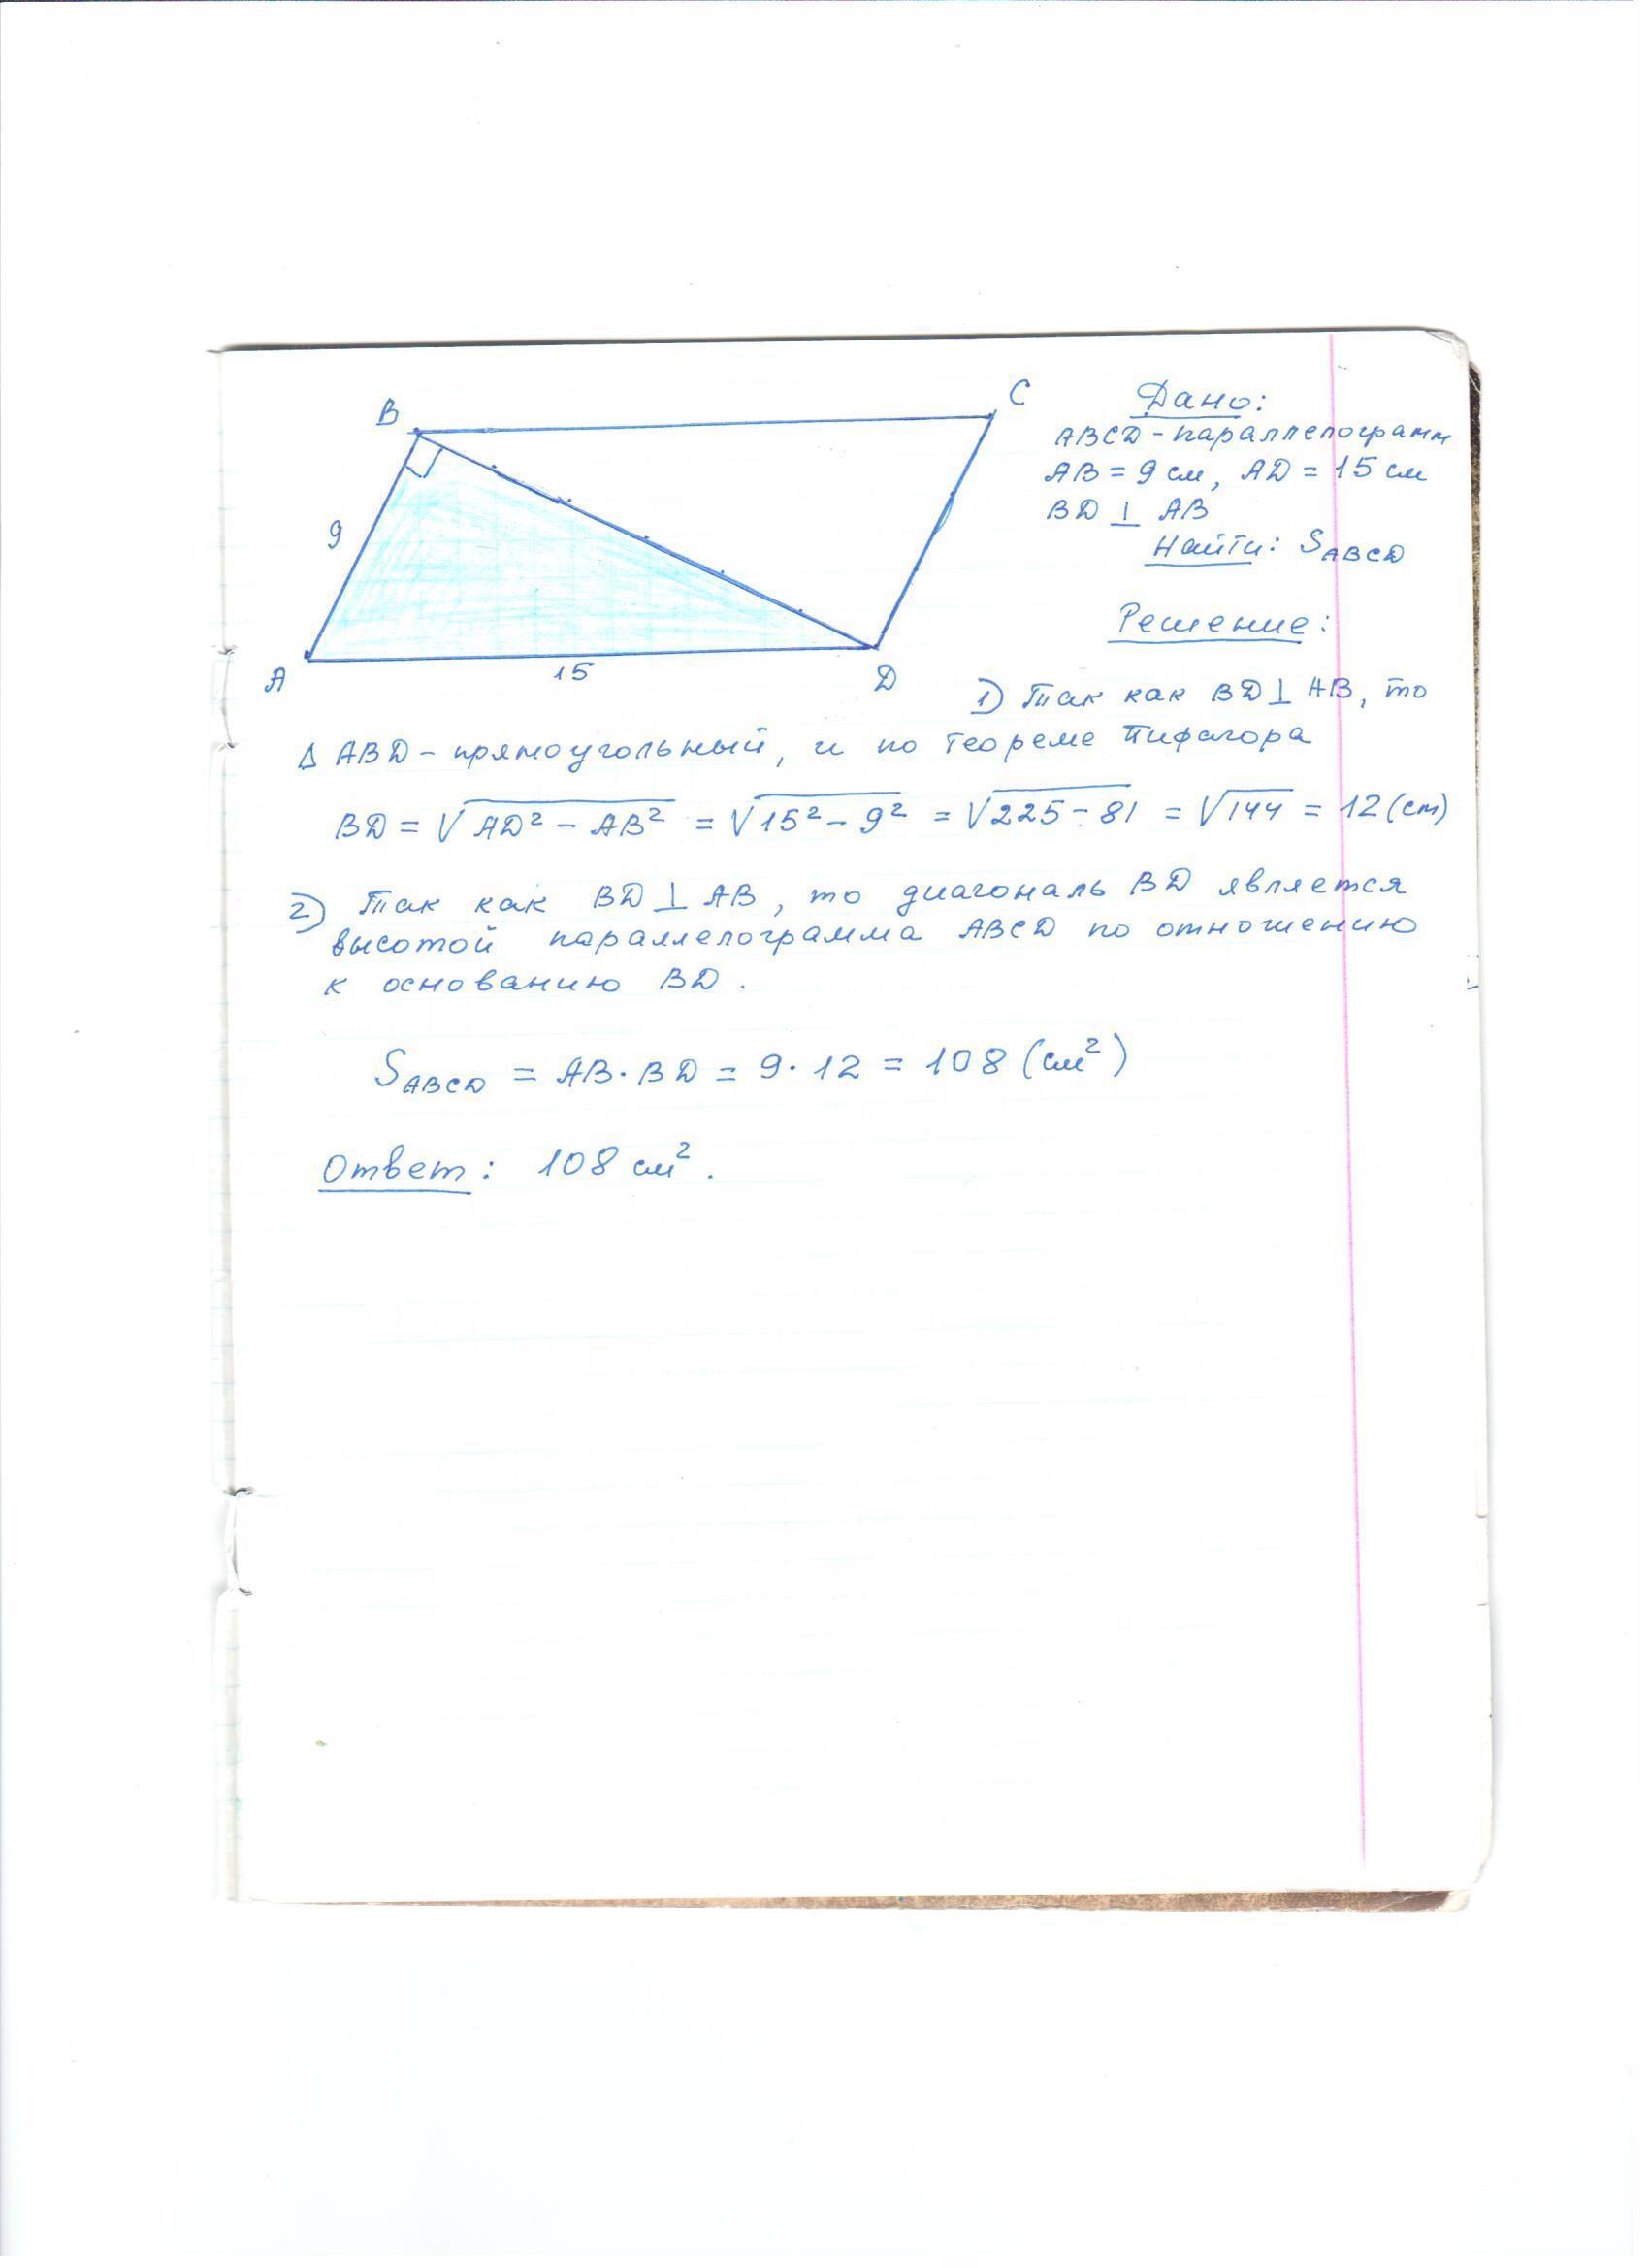 B
C
9
A
15
D
Дано:
ABCD - параллелограмм
AB = 9 см, AD = 15 см
BD ⊥ AB
Найти: S_ABCD
Решение:
1) Так как BD ⊥ AB, то
Δ ABD - прямоугольный, и по теореме Пифагора
BD = √(AD² - AB²) = √(15² - 9²) = √(225 - 81) = √144 = 12 (cm)
2) Так как BD ⊥ AB, то диагональ BD является
высотой параллелограмма ABCD по отношению
к основанию BD.
S_ABCD = AB · BD = 9 · 12 = 108 (см²)
Ответ: 108 см².